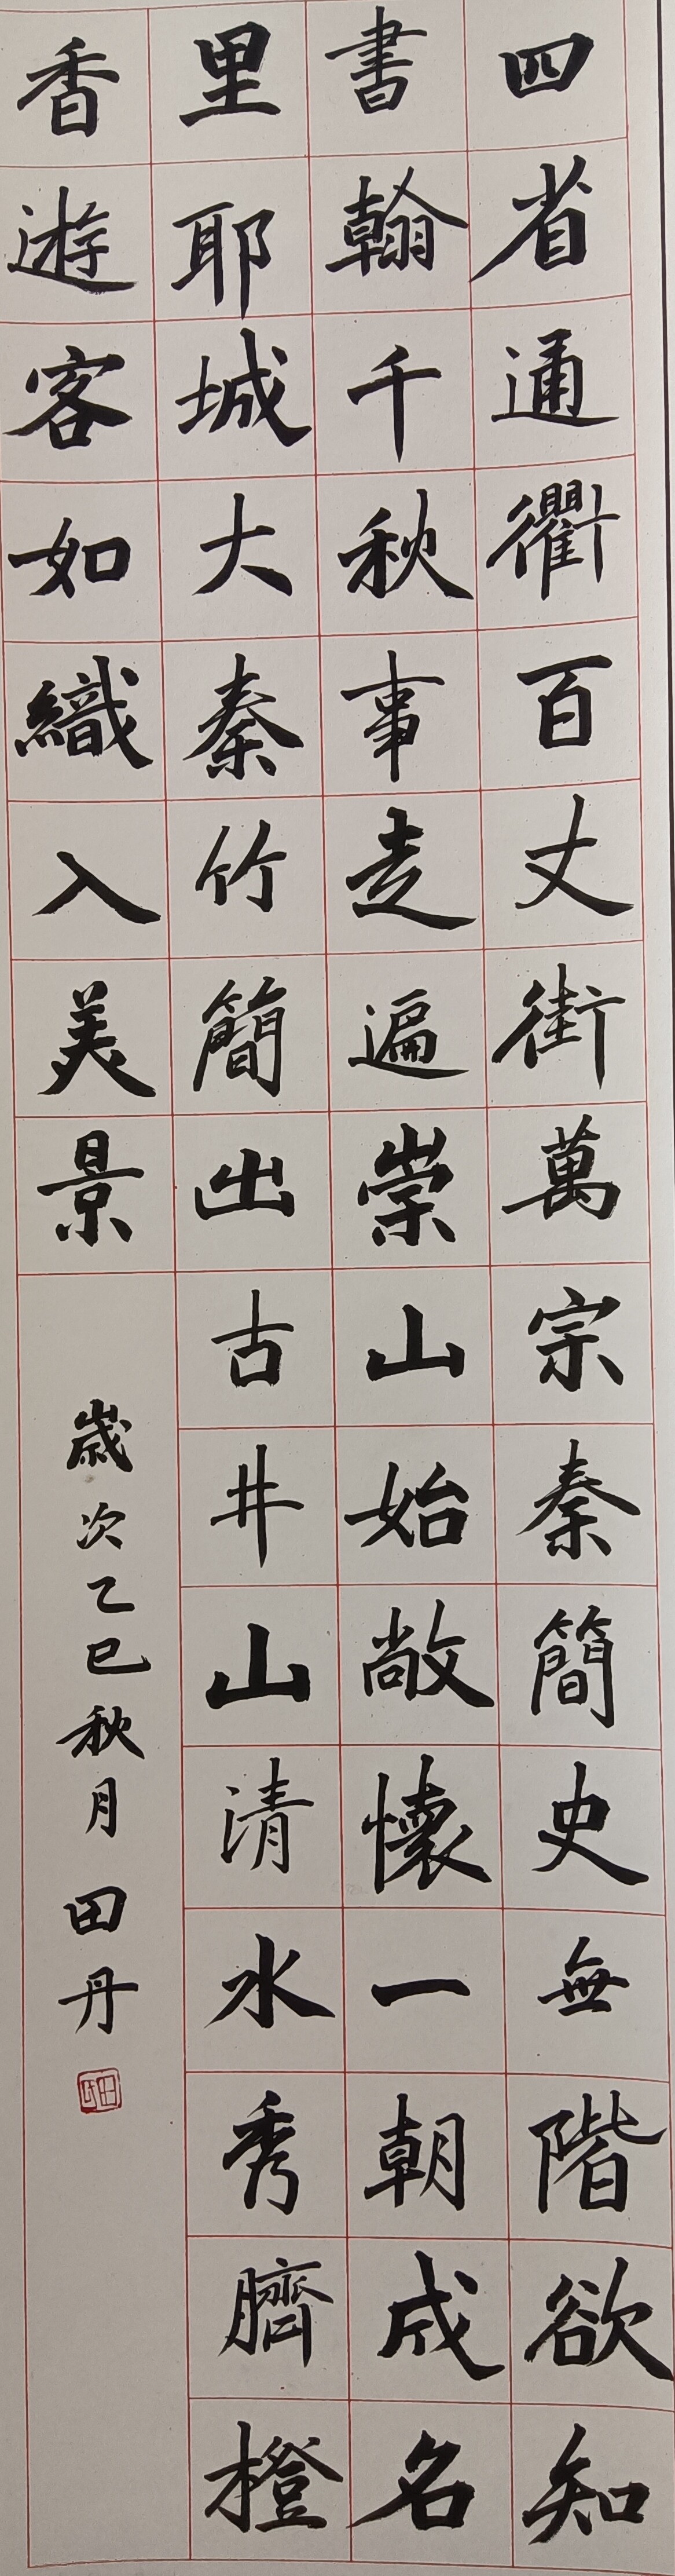 四省通衢百丈街萬宗秦簡史無階欲知
書翰千秋事走遍崇山始敞懷一朝成名
里耶城大秦竹簡出古井山清水秀臍橙
香遊客如織入美景
歲次乙巳秋月田丹